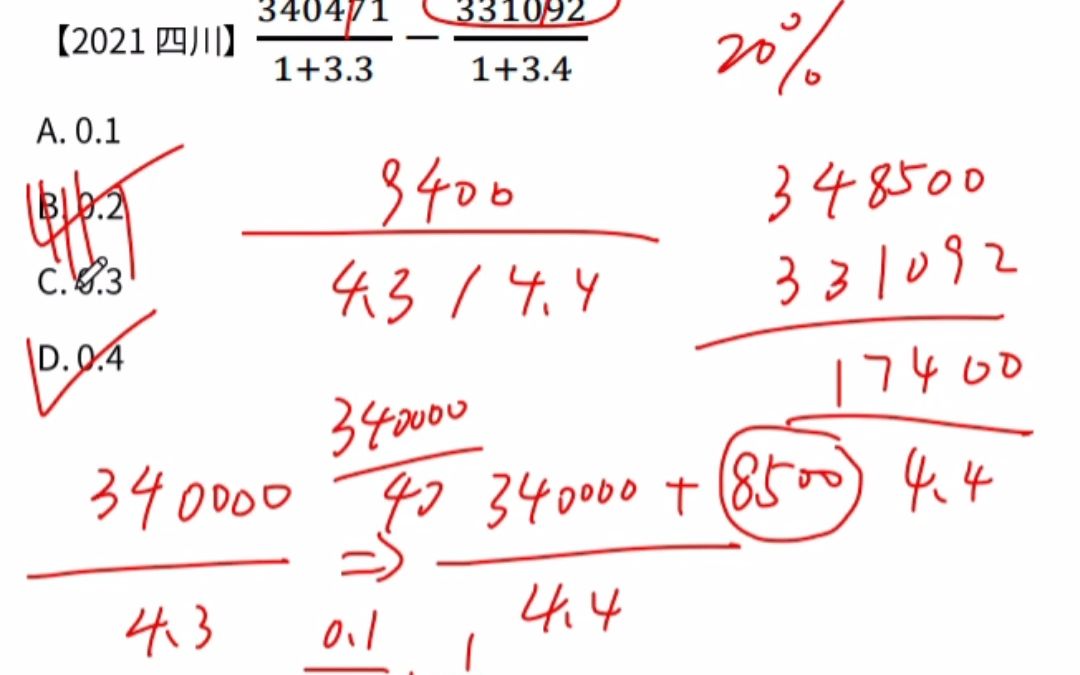 【2021 四川】 340471/(1+3.3) − 331092/(1+3.4) 20%
A. 0.1
B. 0.2
C. 0.3
D. 0.4
3400
4.3 / 4.4
348500
331092
17400
4.4
340000
40
340000
4.3
⇒
340000 + 8500
4.4
0.1
1